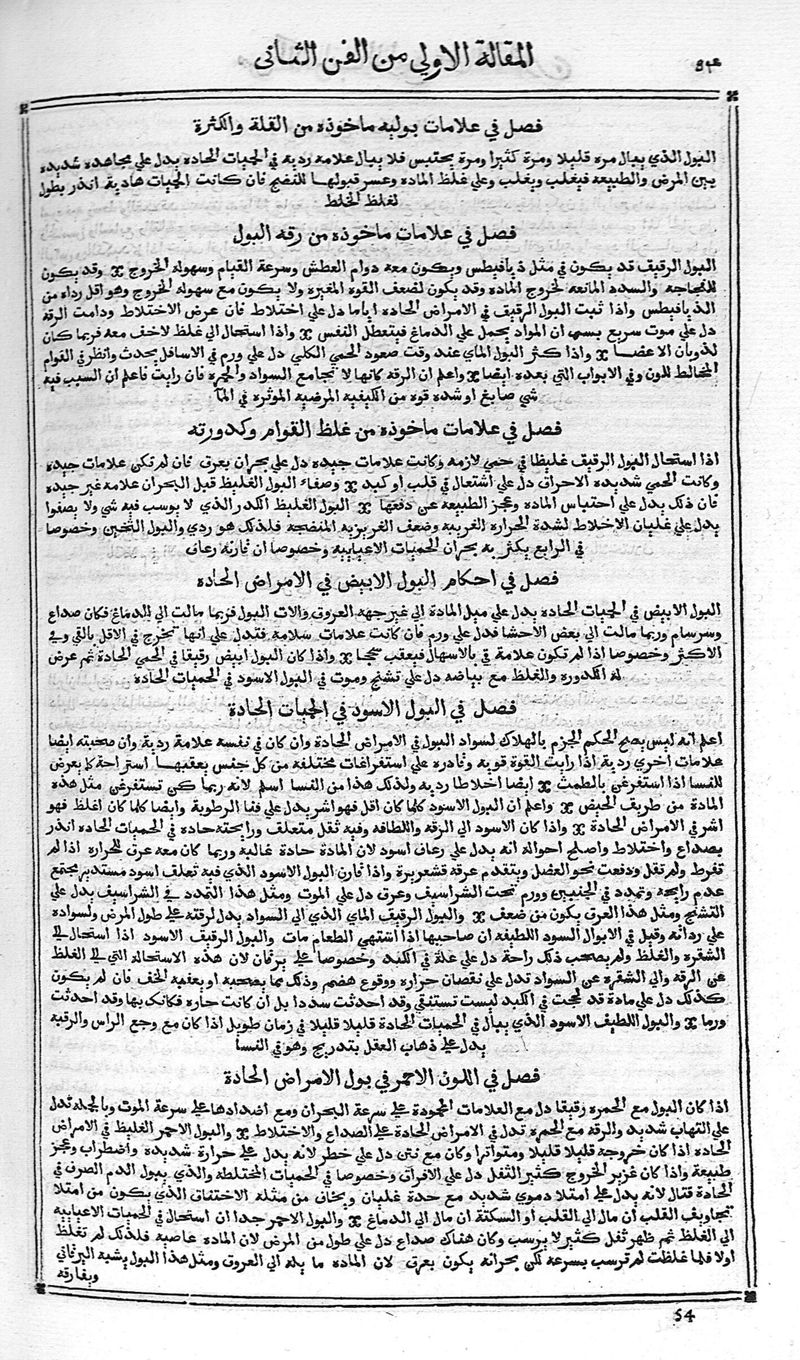 المقالة الاولي من الفن الثاني
فصل في علامات بوليه ماخوذه من القلة والكثرة
البول الذي يبال مره قليلا ومرة كثيرا ومرة يحتبس فلا يبال علامه رديه في الحميات الحاده يدل علي مجاهده شديده
بين المرض والطبيعه فيغلب ويغلب وعلي غلظ الماده وعسر قبولها للنضج فان كانت الحميات هادية انذر بطول
لغلظ الخلط
فصل في علامات ماخوذه من رقه البول
البول الرقيق قد يكون في مثل ذيافيطس ويكون معه دوام العطش وسرعة القيام وسهوله الخروج وقد يكون
للفجاجه والسدد المانعه لخروج الماده وقد يكون لضعف القوه المغيره ولا يكون مع سهوله الخروج وهو اقل رداه من
الذيافيطس واذا ثبت البول الرقيق في الامراض الحاده اياما دل علي اختلاط فان عرض الاختلاط ودامت الرقه
دل علي موت سريع بسبب ان المواد يحمل علي الدماغ فيتعطل النفس واذا استحال الي غلظ لاخف معه فربما كان
لذوبان الاعضا واذا كثر البول الماي عند وقت صعود الحمي الكلي دل علي ورم في الاسافل يحدث وانظر في القوام
المخالط للون وفي الابواب التي بعده ايضا واعلم ان الرقه كانها لا تجامع السواد والحمره فان رايت فاعلم ان السبب فيه
شي صابغ او شده قوه من الكيفيه المرضيه الموثره في الما
فصل في علامات ماخوذه من غلظ القوام وكدورته
اذا استحال البول الرقيق غليظا في حمي لازمه وكانت علامات جيده دل علي بحران بعرق فان لم تكن علامات جيده
وكانت الحمي شديده الاحراق دل علي اشتعال في قلب او كبد وصفاء البول الغليظ قبل البحران علامه غير جيده
فان ذلك يدل علي احتباس الماده وعجز الطبيعه عن دفعها البول الغليظ الكدر الذي لا يرسب فيه شي ولا يصفوا
يدل علي غليان الاخلاط لشدة الحراره الغريبه وضعف الغريزيه المنضجه فلذلك هو ردي والبول الثخين وخصوصا
في الرابع يكثر به بحران الحميات الاعيابيه وخصوصا ان قارنه رعاف
فصل في احكام البول الابيض في الامراض الحاده
البول الابيض في الحميات الحاده يدل علي ميل الماده الي غير جهه العروق والات البول فربما مالت الي الدماغ فكان صداع
وسرسام وربما مالت الي بعض الاحشا فدل علي ورم فان كانت علامات سلامه فتدل علي انها تخرج في الاقل بالقي وفي
الاكثر وخصوصا اذا لم تكون علامة في بالاسهال فيعقب سحجا واذا كان البول ابيض رقيقا في الحمي الحادة ثم عرض
له الكدوره والغلظ مع بياضه دل علي تشنج وموت في البول الاسود في الحميات الحاده
فصل في البول الاسود في الحميات الحادة
اعلم انه ليس يصح الحكم الجزم بالهلاك لسواد البول في الامراض الحادة وان كان في نفسه علامة ردية وان صحبته ايضا
علامات اخري ردية اذا رايت القوة قوية وقادره علي استفراغات مختلفه من كل جنس يعقبها استراحة كما يعرض
للنفسا اذا استفرغن بالطمث ايضا اخلاطا رديه ولذلك هذا من النفسا اسلم لانه ربما كن تستفرغن مثل هذه
المادة من طريق الحيض واعلم ان البول الاسود كلما كان اقل فهو اشر يدل علي فنا الرطوبة وايضا كلما كان اغلظ فهو
اشر في الامراض الحادة واذا كان الاسود الي الرقه واللطافه وفيه ثفل متعلف ورايحته حاده في الحميات الحاده انذر
بصداع واختلاط واصلح احواله انه يدل علي رعاف اسود لان المادة حادة غالبه وربما كان معه عرق للحراره اذا لم
تفرط ولم تقل ودفعت نحو العضل ويتقدم عرقة قشعريرة واذا قارن البول الاسود الذي فيه تعلف اسود مستدير مجتمع
عدم رايحة وتمدد في الجنبين وورم تحت الشراسيف وعرق دل علي الموت ومثل هذا التمدد في الشراسيف يدل علي
التشنج ومثل هذا العرق يكون من ضعف والبول الرقيق الماي الذي الي السواد يدل لرقته علي طول المرض ولسواده
علي رداته وقيل في الابوال السود اللطيفه ان صاحبها اذا اشتهي الطعام مات والبول الرقيق الاسود اذا استحال الي
الشقره والغلظ ولم يصحب ذلك راحة دل علي علة في الكبد وخصوصا علي يرقان لان هذه الاستحالة التي الي الغلظ
عن الرقه والي الشقره عن السواد تدل علي نقصان حراره ووقوع هضم وذلك مما يصحبه او يعقبه الخف فان لم يكون
كذلك دل علي مادة قد لحجت في الكبد ليست تستنقي وقد احدثت سددا بل ان كانت حاره فكانك بها وقد احدثت
ورما والبول اللطيف الاسود الذي يبال في الحميات الحادة قليلا قليلا في زمان طويل اذا كان مع وجع الراس والرقبه
يدل علي ذهاب العقل بتدريج وهو في النسا
فصل في اللون الاحمر في بول الامراض الحادة
اذا كان البول مع الحمره رقيقا دل مع العلامات المحمودة علي سرعة البحران ومع اضدادها علي سرعة الموت وبالجمله تدل
علي التهاب شديد والرقه مع الحمره تدل في الامراض الحادة علي الصداع والاختلاط والبول الاحمر الغليظ في الامراض
الحاده اذا كان خروجه قليلا قليلا ومتواترا وكان مع نتن دل علي خطر لانه يدل علي حرارة شديده واضطراب وعجز
طبيعة واذا كان غزير الخروج كثير الثفل دل علي الافراق وخصوصا في الحميات المختلطه والذي يبول الدم الصرف في
الحادة قتال لانه يدل علي امتلا دموي شديد مع حدة غليان ويخاف من مثله الاختناق الذي يكون من امتلا
تجاويف القلب ان مال الي القلب او السكتة ان مال الي الدماغ والبول الاحمر جدا ان استحال في الحميات الاعيابيه
الي الغلظ ثم ظهر ثفل كثير لا يرسب وكان هناك صداع دل علي طول من المرض لان المادة عاصية فلذلك لم تغلظ
اولا فلما غلظت لم ترسب بسرعه لكن بحرانه يكون بعرق لان المادة ما يله الي العروق ومثل هذا البول يشبه اليرقاني
ويفارقه
54